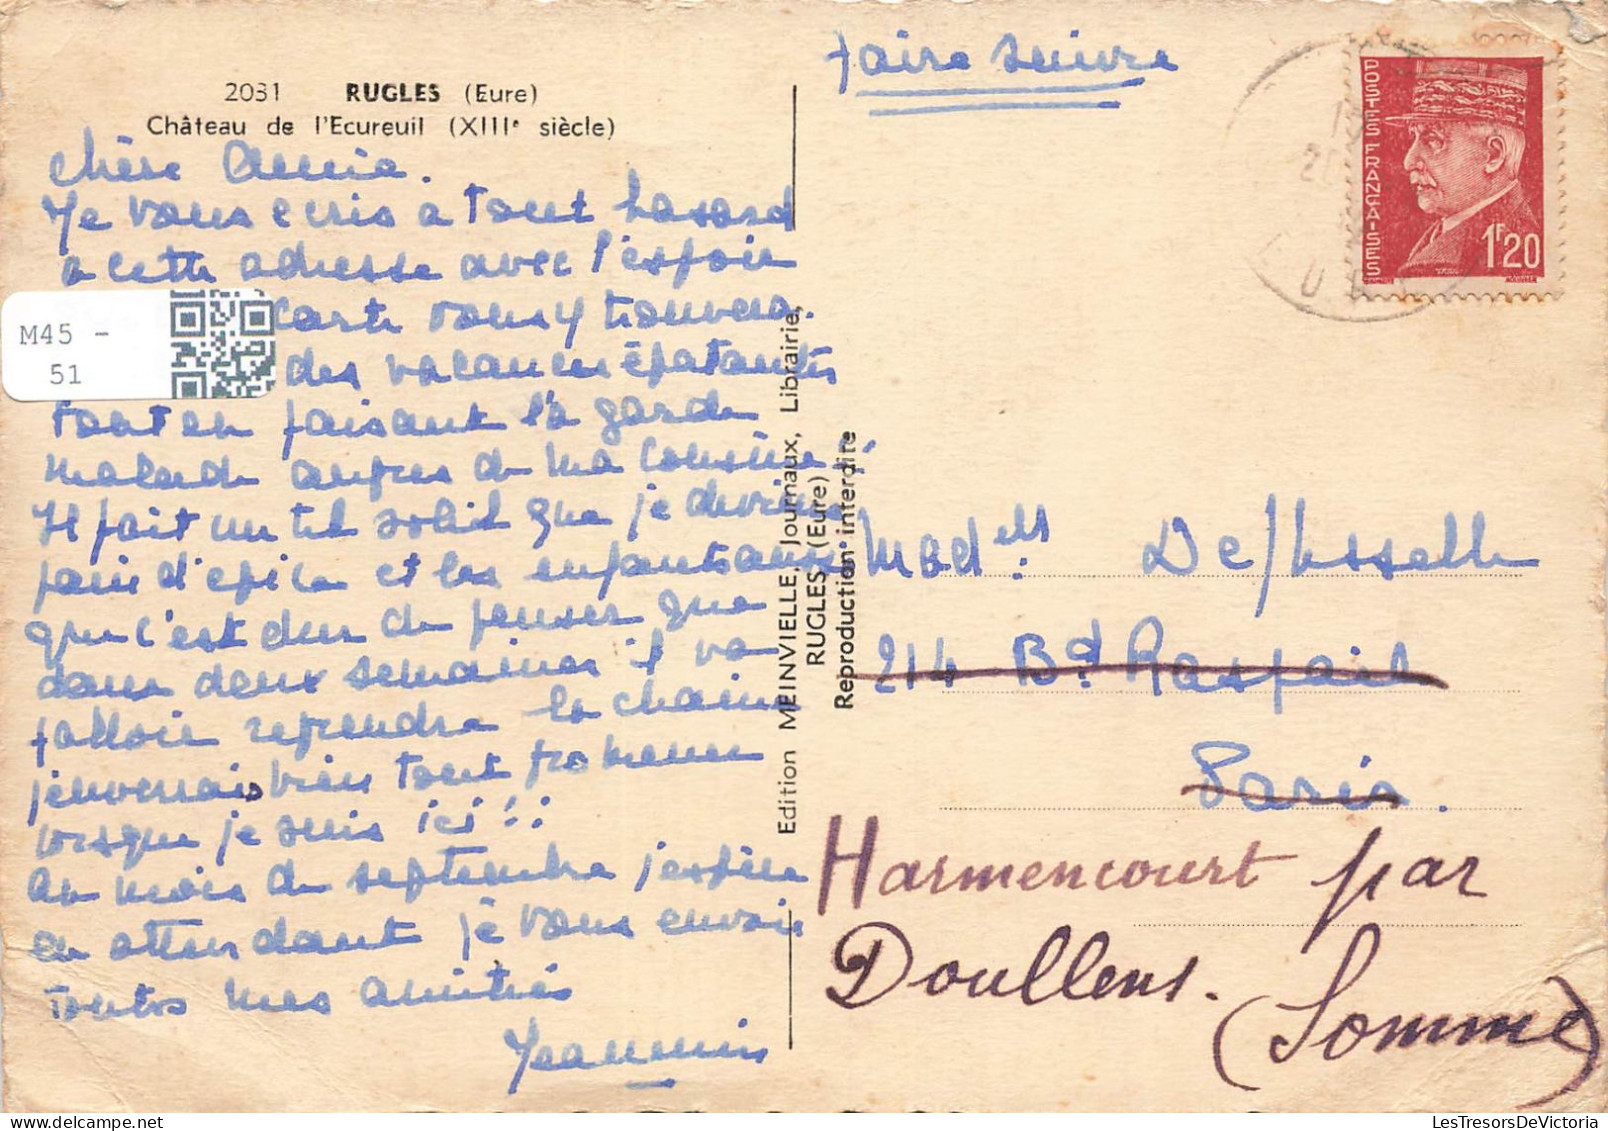 2031 RUGLES (Eure)
Château de l'Ecureuil (XIIIe siècle)
Chère Annie.
Je vous ecris a tout hasard
a cette adresse avec l'espoir
carte vous y trouvera.
des vacances épatantes
tout en faisant la garde
malade aupres de ma cousine!
Il fait un tel soleil que je deviens
pain d'epice et les enfants aussi
que c'est dur de penser que
dans deux semaines il va
falloir reprendre la chaine
j'enverrais bien tout promener
lorsque je suis ici!!
Au mois de septembre j'espère
en attendant je vous envoie
toutes mes amitiés
Jeannine
M45 -
51
Edition MEINVIELLE, Journaux, Librairie,
RUGLES (Eure)
Reproduction interdite
faire suivre
POSTES FRANÇAISES
1F20
Madelle
214 Bd Raspail
Paris.
Harmencourt par
Doullens.
(Somme)
LesTresorsDeVictoria
LesTresorsDeVictoria